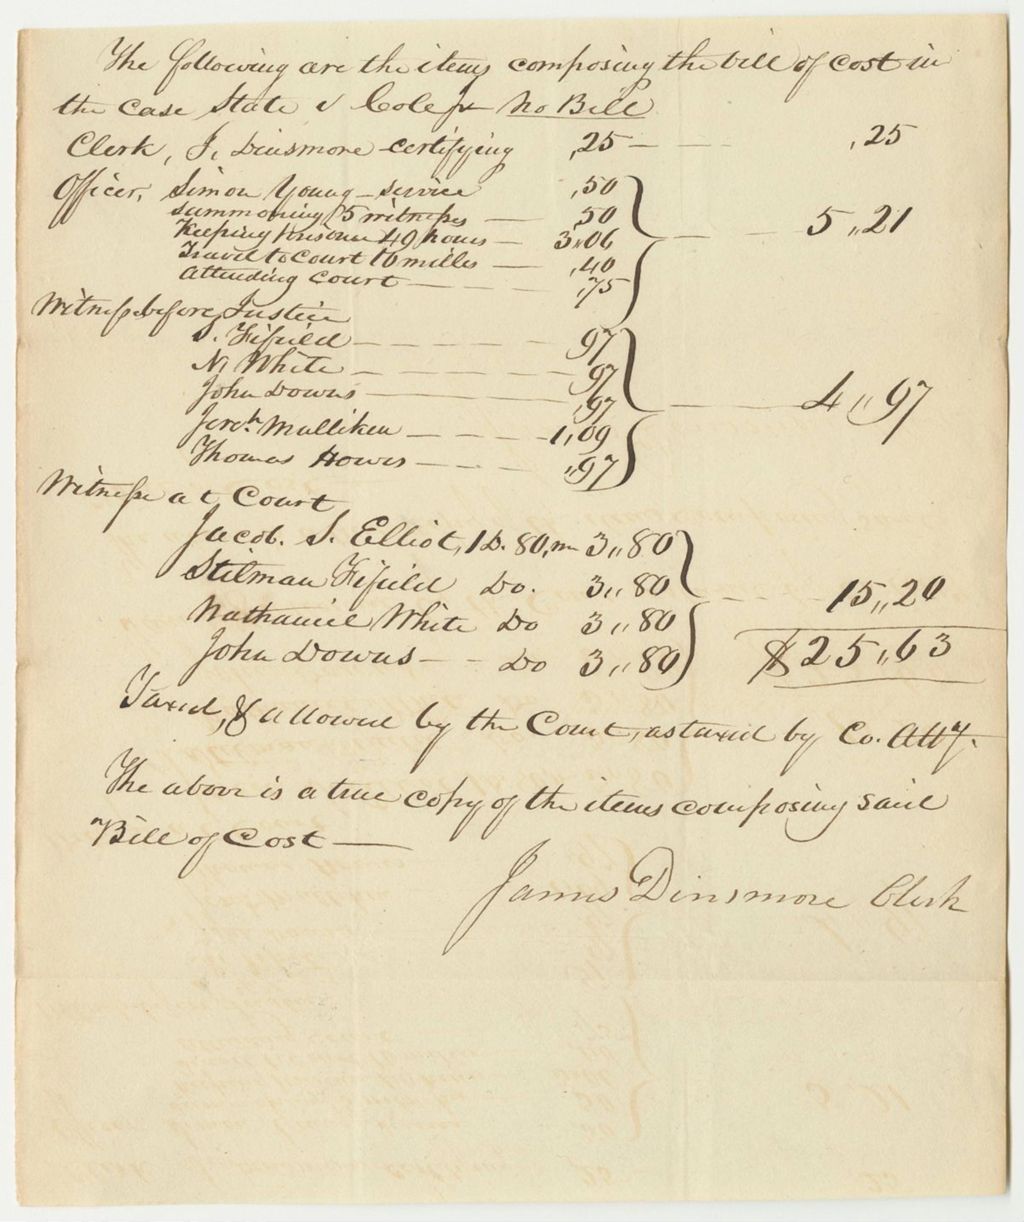 The following are the items composing the bill of cost in
the case State v Cole Jr No Bill
Clerk, J. Dinsmore certifying ,25 ,25
Officer, Simon Young service ,50
summoning 5 witnesses ,50
Keeping prisoner 49 hours 3,,06 5,,21
Travel to Court 10 miles ,40
Attending Court ,75
Witness before Justice
S. Fifield ,97
N. White ,97
John Downs ,97 4,,97
Jereh. Mulliken 1,,09
Thomas Howes ,97
Witness at Court
Jacob. S. Elliot, 1 D. 80, m 3,,80
Stilman Fifield Do. 3,,80 15,,20
Nathaniel White Do 3,,80
John Downs Do 3,,80 $25,,63
Taxed, & allowed by the Court, as taxed by Co. Atty.
The above is a true copy of the items composing said
Bill of Cost
James Dinsmore Clerk